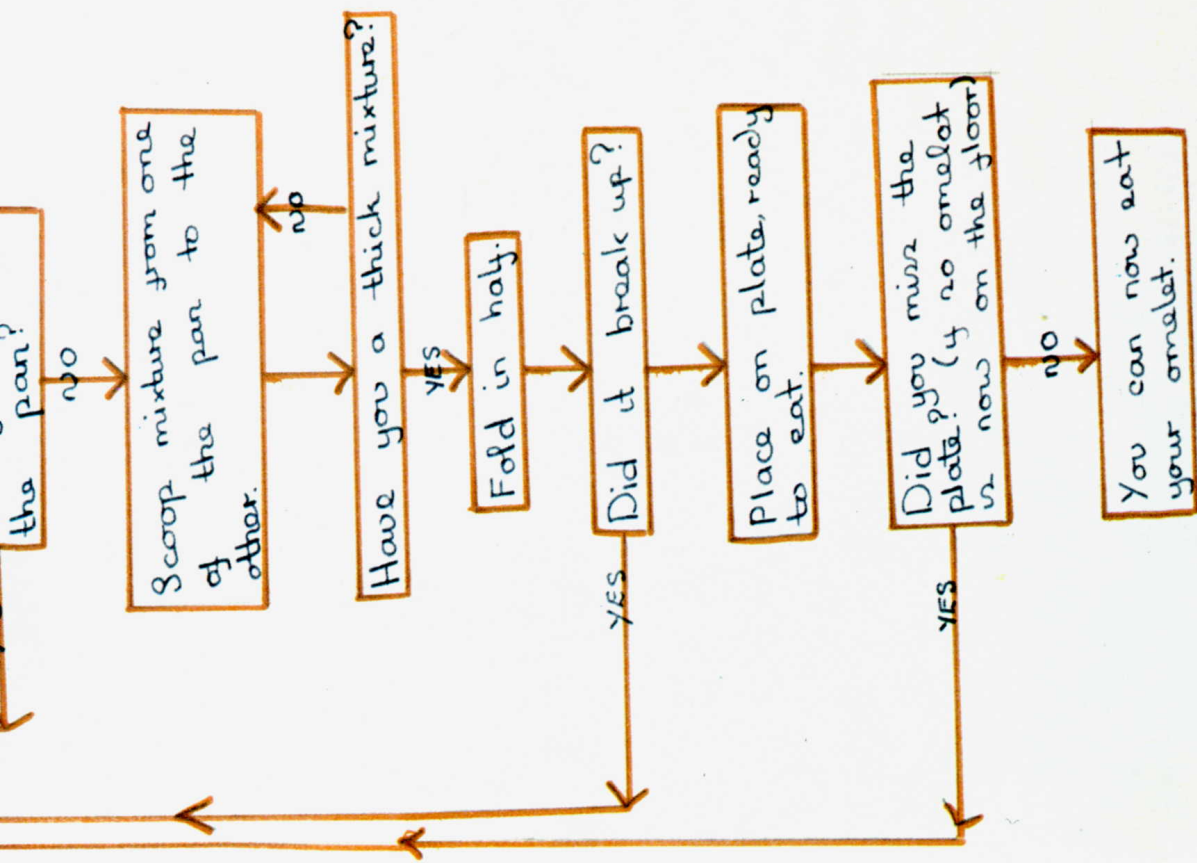 the pan?
NO
Scoop mixture from one
of the pan to the
other.
NO
Have you a thick mixture?
YES
Fold in half.
Did it break up?
YES
Place on plate, ready
to eat.
Did you miss the
plate? (if so omelat
is now on the floor)
YES
NO
You can now eat
your omelet.